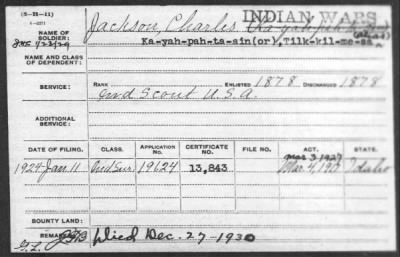 (3-2H-11)
INDIAN WARS
NAME OF SOLDIER:
Jackson, Charles
(alias)
Ka-yah-pah-ta-ain(or), Tilk-kil-me-sa
NAME AND CLASS OF DEPENDENT:
SERVICE:
RANK
ENLISTED 1878 DISCHARGED 1878
Ind Scout U.S.A.
ADDITIONAL SERVICE:
DATE OF FILING. CLASS. APPLICATION NO. CERTIFICATE NO. FILE NO. ACT. STATE.
Mar 3 1927
1924 Jan 11 Ind Sur. 19624 13,843 Mar 4, 1917 Idaho
BOUNTY LAND:
REMARKS:
Died Dec. 27-1930